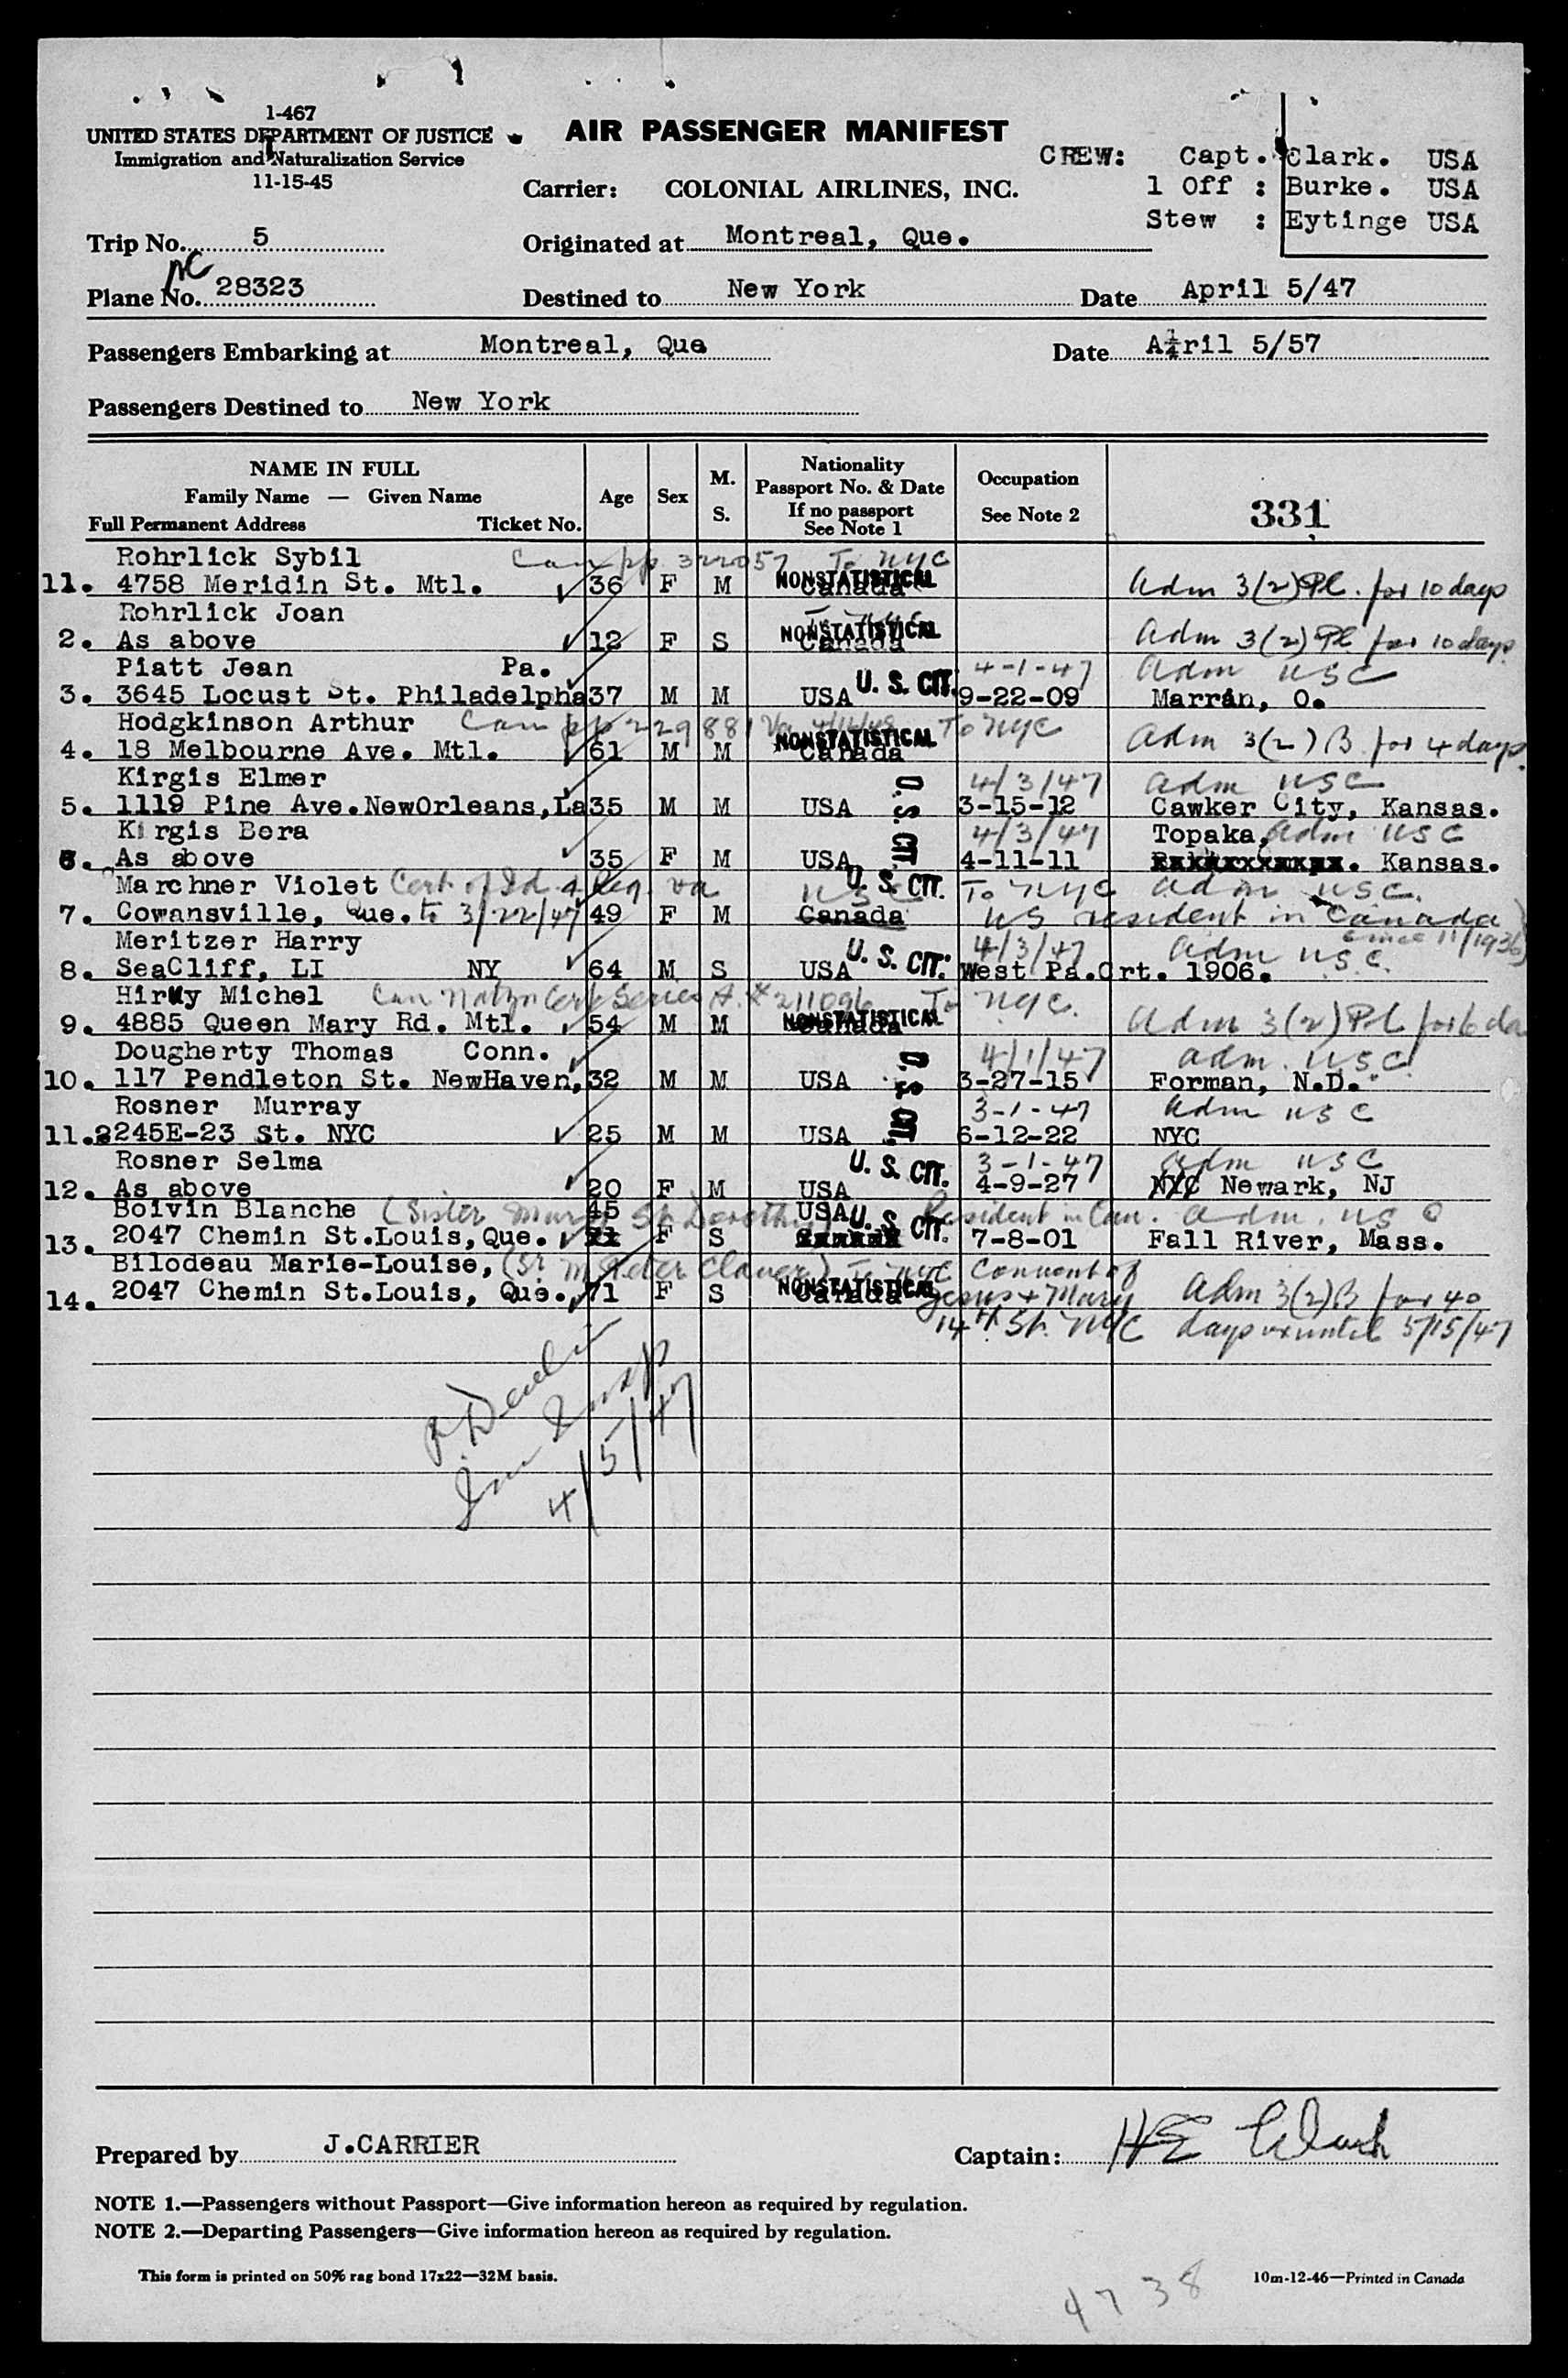 1-467
UNITED STATES DEPARTMENT OF JUSTICE
Immigration and Naturalization Service
11-15-45
AIR PASSENGER MANIFEST
Carrier: COLONIAL AIRLINES, INC.
CREW: Capt. Clark. USA
1 Off : Burke. USA
Stew : Eytinge USA
Trip No. 5
Originated at Montreal, Que.
NC
Plane No. 28323
Destined to New York
Date April 5/47
Passengers Embarking at Montreal, Que
Date April 5/57
Passengers Destined to New York
NAME IN FULL
Family Name — Given Name
Full Permanent Address Ticket No.
Age
Sex
M. S.
Nationality
Passport No. & Date
If no passport
See Note 1
Occupation
See Note 2
331
Rohrlick Sybil Can pp 322057 To NYC
11. 4758 Meridin St. Mtl. 36 F M Canada NONSTATISTICAL Adm 3(2)Pl. for 10 days
Rohrlick Joan
2. As above 12 F S Canada NONSTATISTICAL Adm 3(2) Pl for 10 days
Piatt Jean Pa. 4-1-47 Adm USC
3. 3645 Locust St. Philadelpha 37 M M USA U. S. CIT. 9-22-09 Marran, O.
Hodgkinson Arthur Can pp 229881 To NYC
4. 18 Melbourne Ave. Mtl. 61 M M Canada NONSTATISTICAL Adm 3(2) B for 4 days.
Kirgis Elmer 4/3/47 Adm USC
5. 1119 Pine Ave.NewOrleans,La 35 M M USA U. S. CIT. 3-15-12 Cawker City, Kansas.
Kirgis Bera 4/3/47 Topaka, Adm USC
6. As above 35 F M USA 4-11-11 Kansas.
Marchner Violet Cert. of Id. & Reg. va USC U. S. CIT. To NYC Adm USC.
7. Cowansville, Que. to 3/22/47 49 F M Canada US resident in Canada since 11/1936
Meritzer Harry 4/3/47 Adm USC.
8. SeaCliff, LI NY 64 M S USA U. S. CIT. West Pa.Crt. 1906.
Hirky Michel Can Natzn Cert Series A. # 211096 To NYC.
9. 4885 Queen Mary Rd. Mtl. 54 M M Canada NONSTATISTICAL Adm 3(2) Pl for 6 da
Dougherty Thomas Conn. 4/1/47 Adm. USC
10. 117 Pendleton St. NewHaven, 32 M M USA U. S. CIT. 3-27-15 Forman, N.D.
Rosner Murray 3-1-47 Adm USC
11. 2245E-23 St. NYC 25 M M USA 6-12-22 NYC
Rosner Selma 3-1-47 Adm USC
12. As above 20 F M USA U. S. CIT. 4-9-27 NYC Newark, NJ
Boivin Blanche (Sister Mary St Dorothy) 45 USA Resident in Can. Adm. USC
13. 2047 Chemin St.Louis,Que. F S U. S. CIT. 7-8-01 Fall River, Mass.
Bilodeau Marie-Louise, (Sr M Peter Claver) To NYC Convent of
14. 2047 Chemin St.Louis, Que. 71 F S Canada NONSTATISTICAL Jesus & Mary Adm 3(2)B for 40
14th St. NYC days or until 5/15/47
Imm Insp
4/5/47
Prepared by J.CARRIER
Captain: HE Clark
NOTE 1.—Passengers without Passport—Give information hereon as required by regulation.
NOTE 2.—Departing Passengers—Give information hereon as required by regulation.
This form is printed on 50% rag bond 17x22—32M basis.
10m-12-46—Printed in Canada
4738